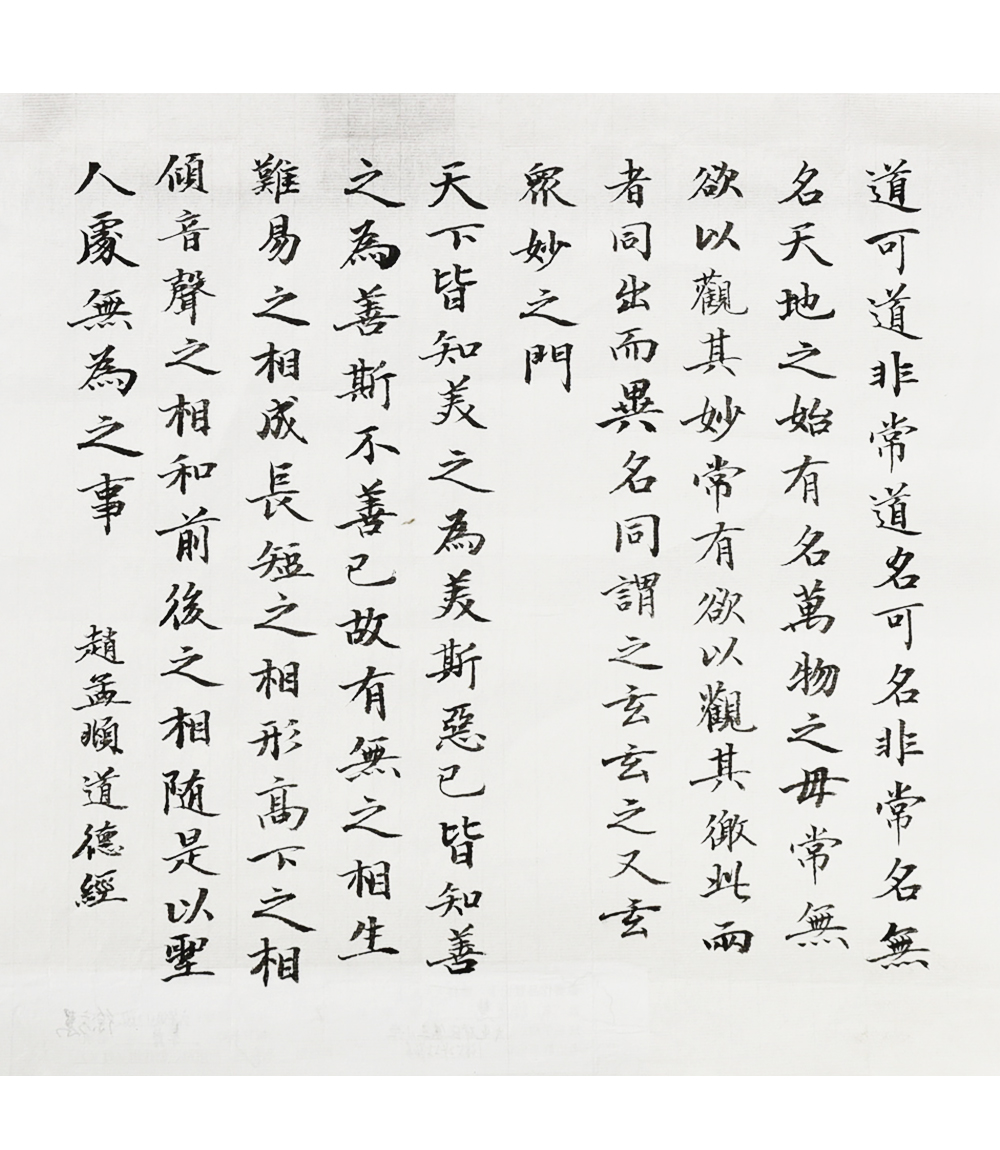 道可道非常道名可名非常名無
名天地之始有名萬物之母常無
欲以觀其妙常有欲以觀其徼此兩
者同出而異名同謂之玄玄之又玄
眾妙之門
天下皆知美之為美斯惡已皆知善
之為善斯不善已故有無之相生
難易之相成長短之相形高下之相
傾音聲之相和前後之相随是以聖
人處無為之事
趙孟頫道德經